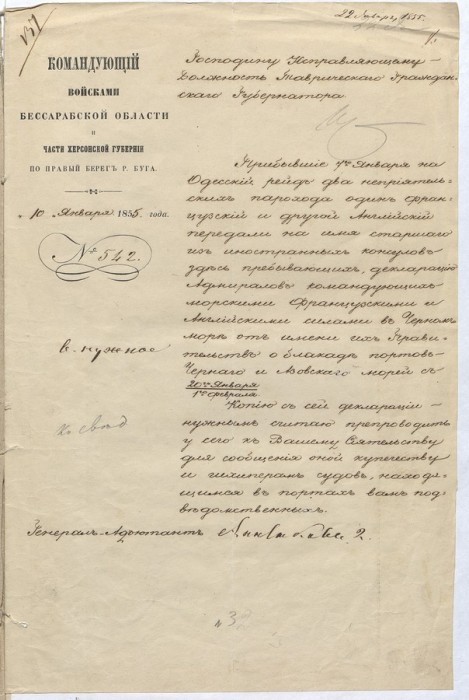 22 Января 1855.
КОМАНДУЮЩІЙ
ВОЙСКАМИ
БЕССАРАБСКОЙ ОБЛАСТИ
И
ЧАСТИ ХЕРСОНСКОЙ ГУБЕРНІИ
ПО ПРАВЫЙ БЕРЕГЪ Р. БУГА.
10 Января 1855 года.
№ 542.
в. нужное
Господину Исправляющему
Должность Таврическаго Граждан-
скаго Губернатора
Прибывшіе 7го Января на
Одесскій рейдъ два непріятель-
скихъ парохода одинъ Фран-
цузскій и другой Англійскій
передали на имя старшаго
изъ иностранныхъ консуловъ
здѣсь пребывающихъ, декларацію
Адмираловъ командующихъ
морскими Французскими и
Англійскими силами въ Черномъ
морѣ отъ имени ихъ Прави-
тельствъ о блокадѣ портовъ
Чернаго и Азовскаго морей съ
20го Января
1го Февраля
Копію съ сей деклараціи
нужнымъ считаю препроводить
у сего къ Вашему Сіятельству
для сообщенія оной купечеству
и шкиперамъ судовъ, находя-
щимся въ портахъ вамъ под-
вѣдомственныхъ.
Генералъ-Адъютантъ